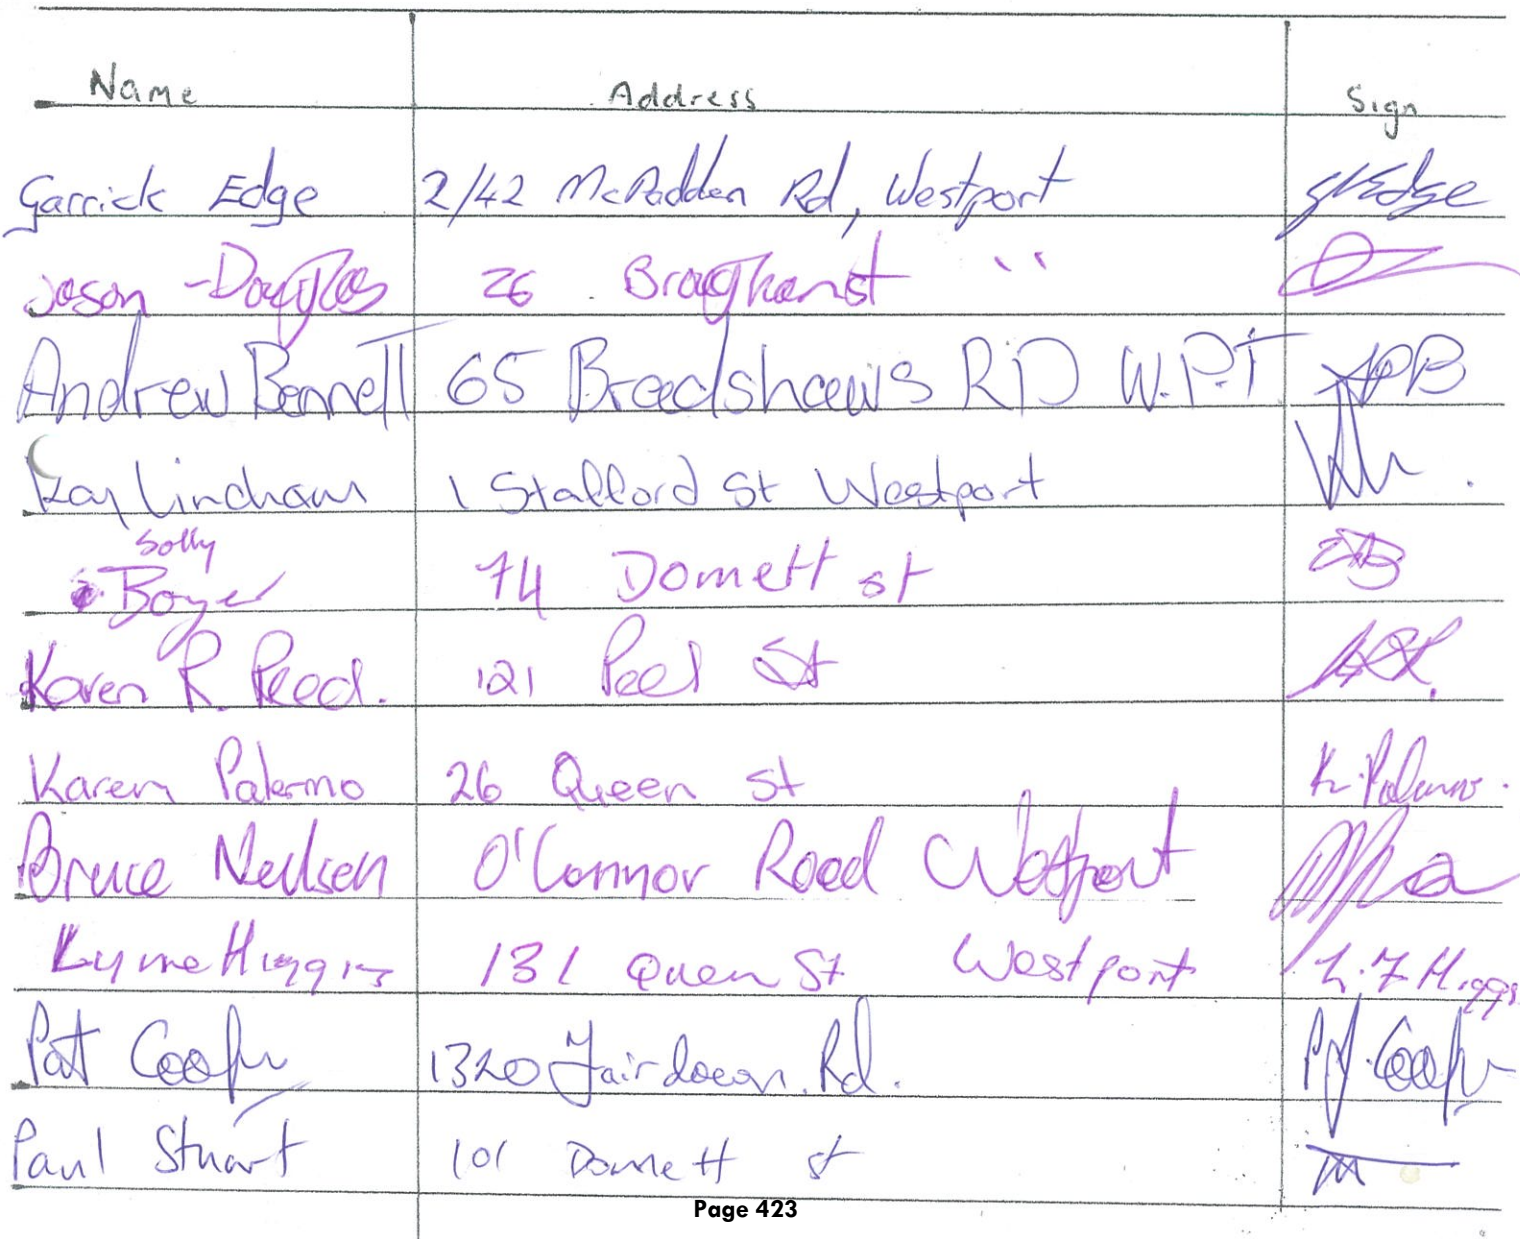 Name Address Sign
Garrick Edge 2/42 McPadden Rd, Westport GKEdge
Jason - Douglas 26 Brougham st " 
Andrew Bennett 65 Bradshaws RD W.P.T APB
Kay Lincham 1 Stafford St Westport
Solly
Boyer 74 Domett st
Karen R. Reed. 121 Peel St
Karen Palermo 26 Queen St K. Palermo.
Bruce Neilsen O'Connor Road Westport
Lynne Higgins 131 Queen St Westport L. F Higgs
Pat Cooper 1320 Fairdown Rd. PJ. Cooper
Paul Stuart 101 Domett st
Page 423